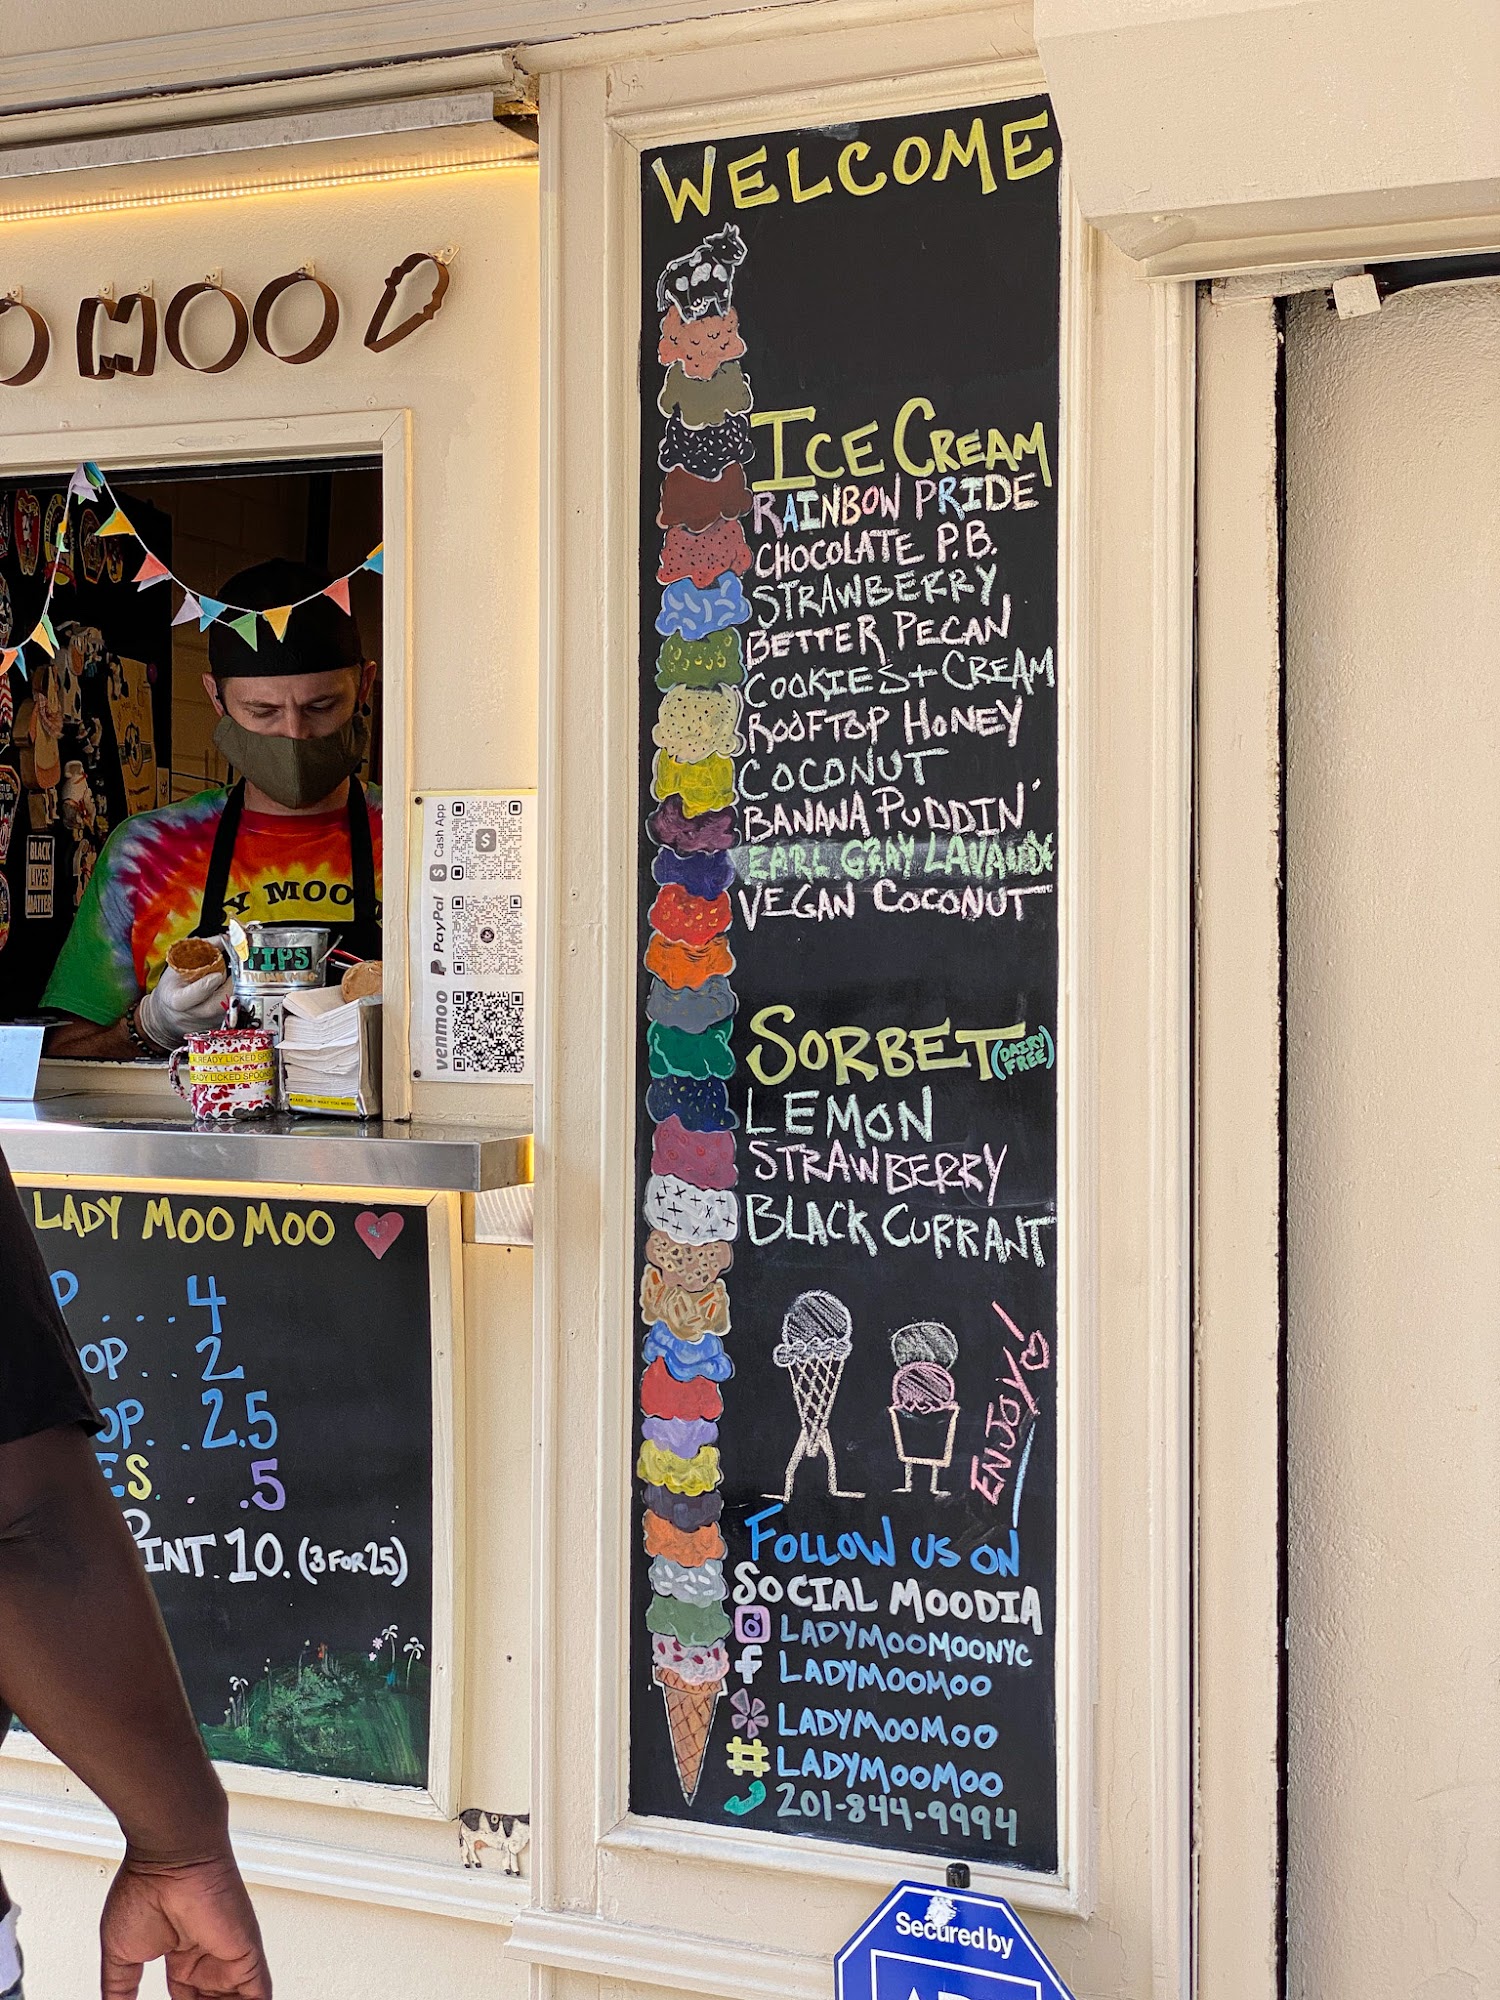 WELCOME
ICE CREAM
RAINBOW PRIDE
CHOCOLATE P.B.
STRAWBERRY
BETTER PECAN
COOKIES + CREAM
ROOFTOP HONEY
COCONUT
BANANA PUDDIN'
EARL GRAY
VEGAN COCONUT
SORBET (DAIRY FREE)
LEMON
STRAWBERRY
BLACK CURRANT
ENJOY!
FOLLOW US ON
SOCIAL MOODIA
LADYMOOMOONYC
f LADYMOOMOO
LADYMOOMOO
# LADYMOOMOO
201-844-9994
Secured by
MOO
Y MOO
BLACK
LIVES
MATTER
TIPS
ALREADY LICKED
LICKED SPOON
$ Cash App
PayPal
venmoo
LADY MOO MOO
P . . . . 4
OP . . 2
OP. . 2.5
ES. . .5
INT. 10. (3 FOR 25)